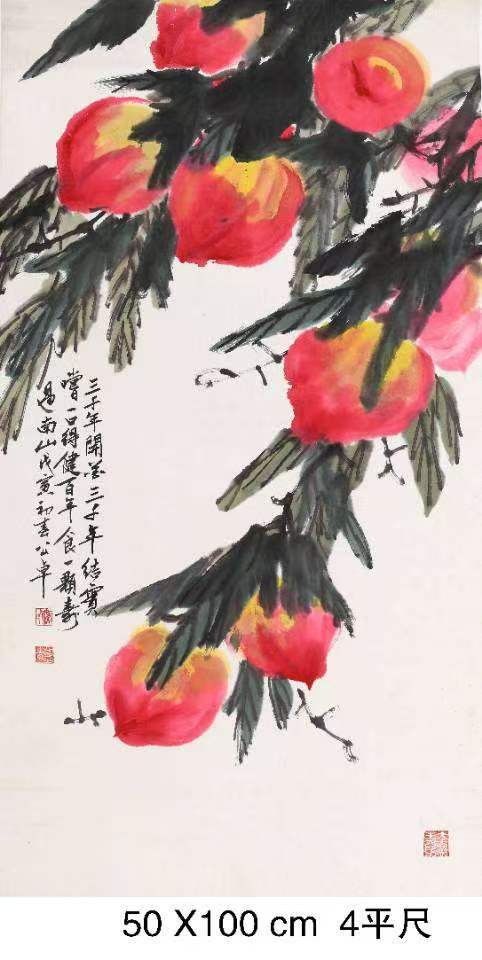 三千年開花三千年结實
嚐一口得健百年食一顆壽
過南山戊寅初春公卓
50 X100 cm 4平尺